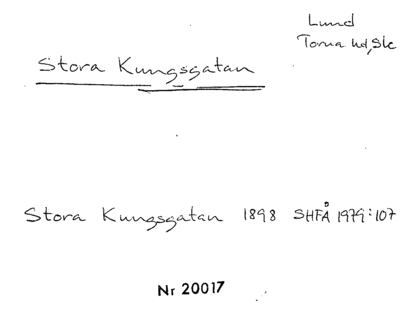 Lund
Torna hd, Sk
Stora Kungsgatan
Stora Kungsgatan 1898 SHFÅ 1979:107
Nr 20017